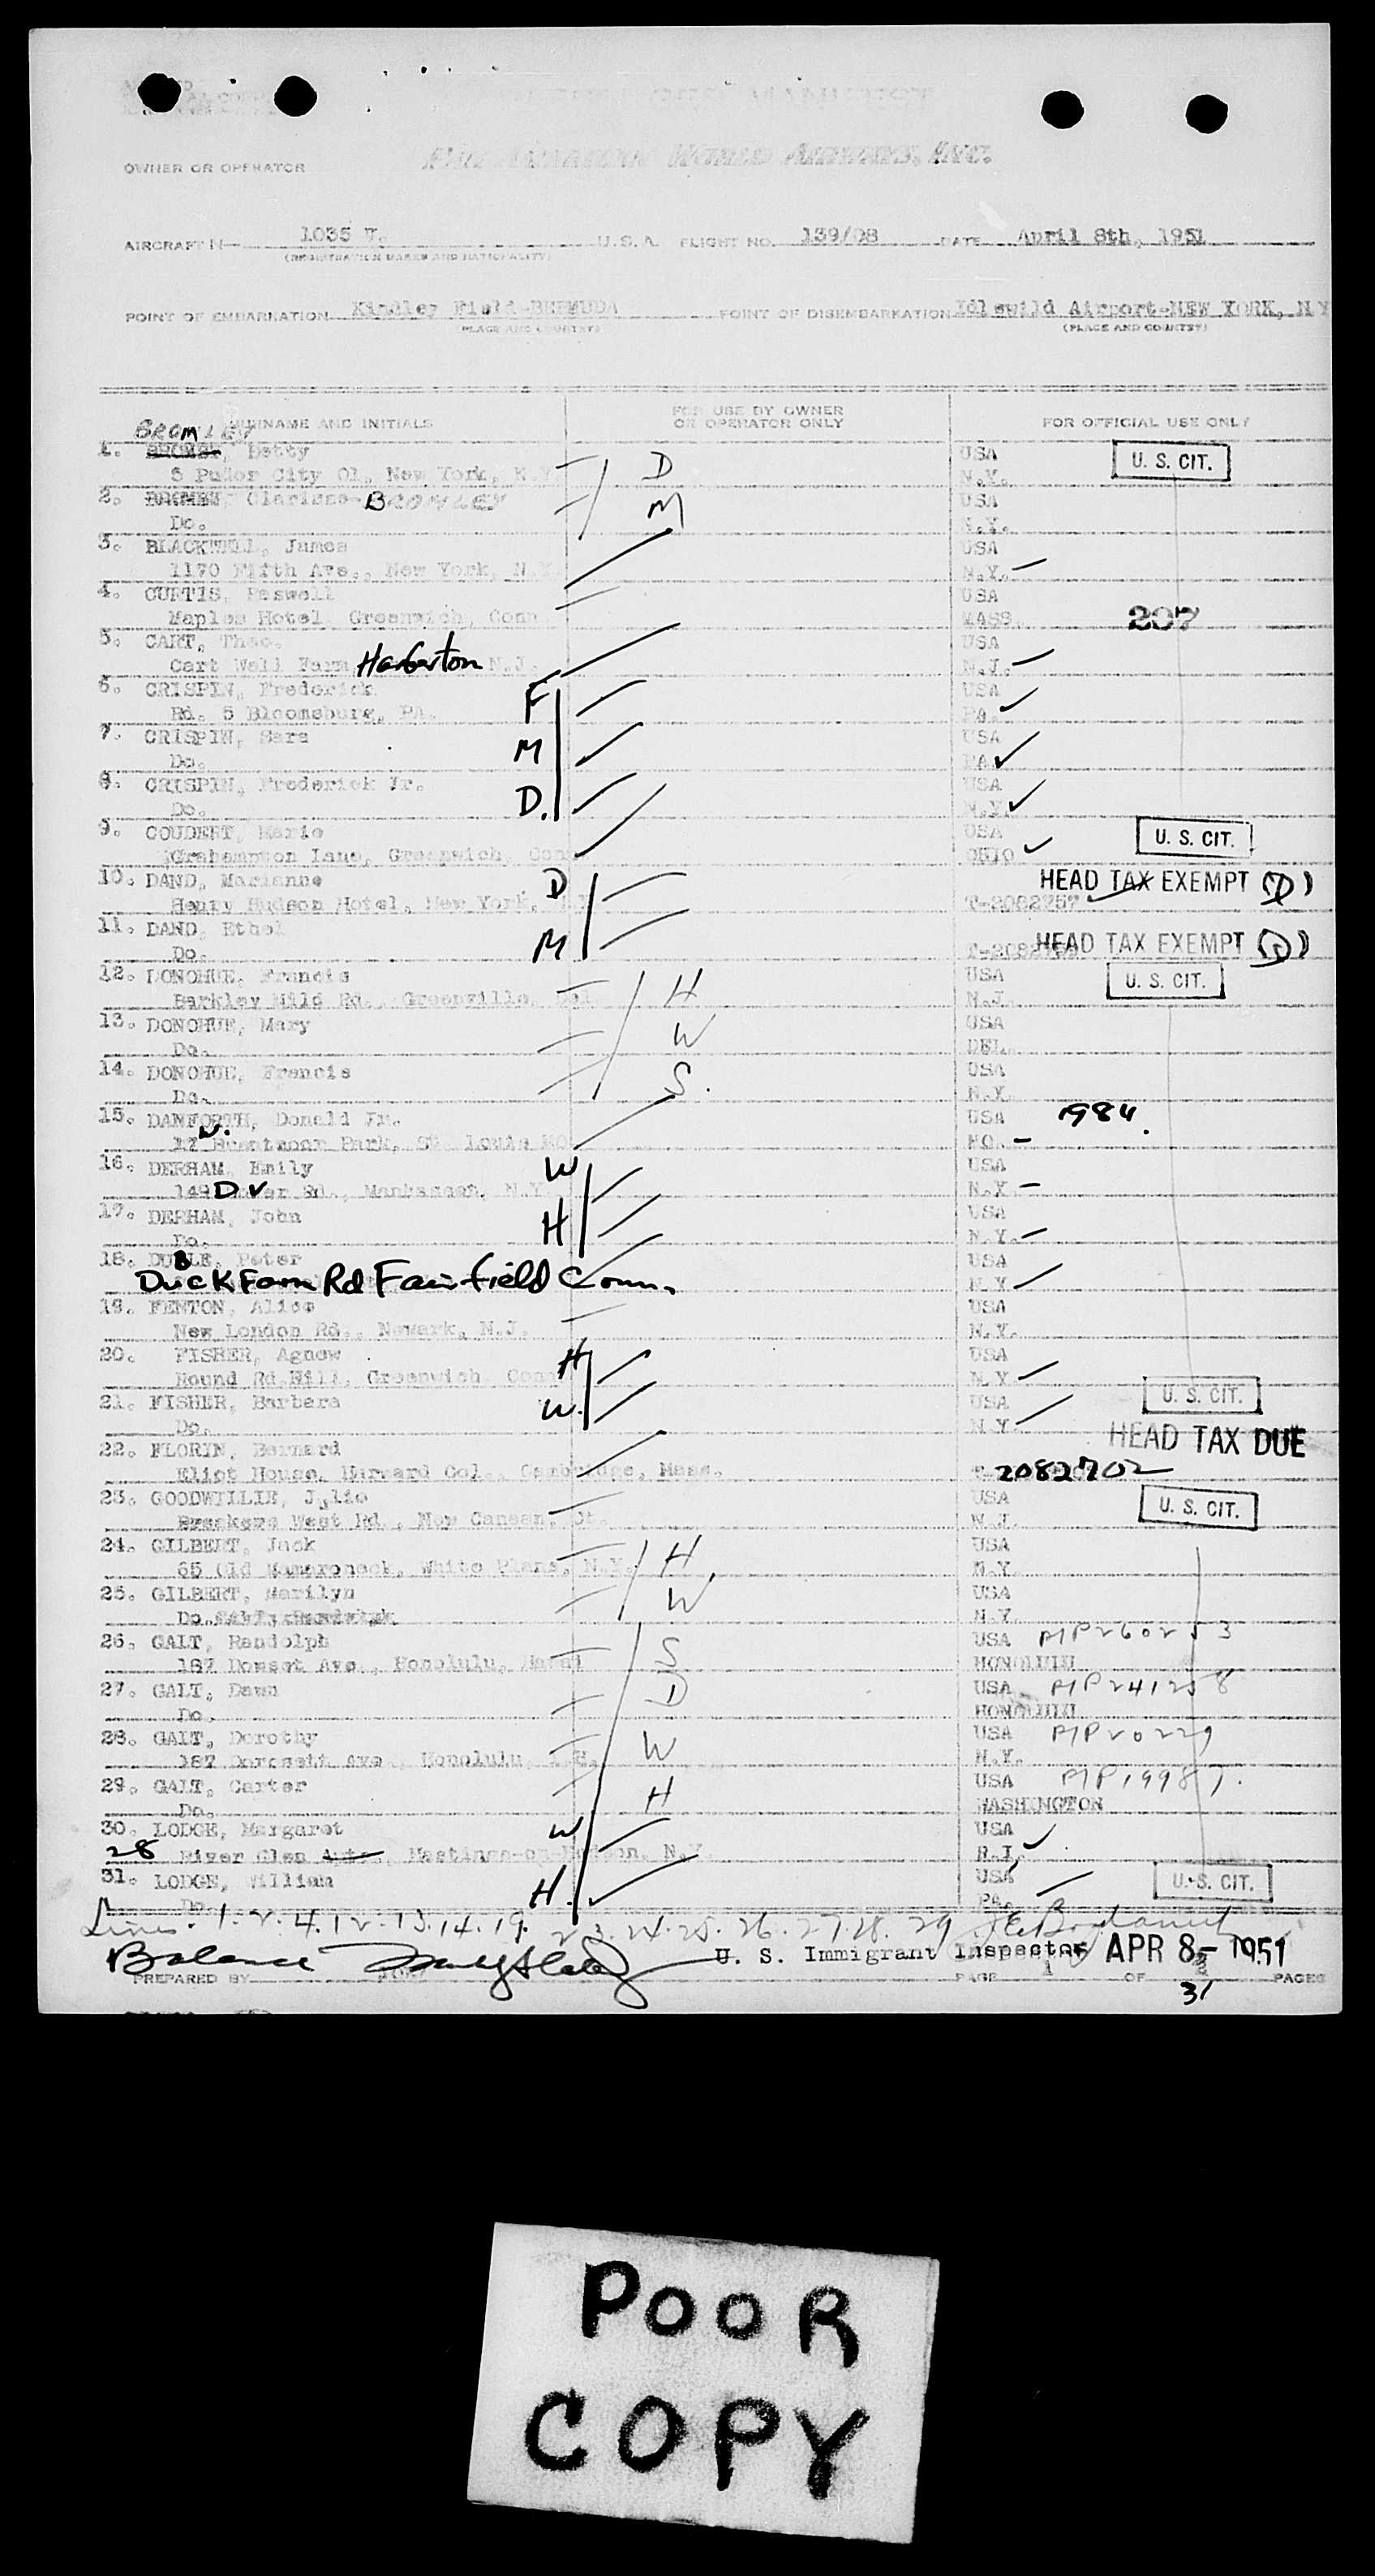 PAN AMERICAN WORLD AIRWAYS, INC.
OWNER OR OPERATOR
AIRCRAFT N— 1035 V. U.S.A. FLIGHT NO. 139/08 DATE April 8th, 1951
(REGISTRATION MARKS AND NATIONALITY)
POINT OF EMBARKATION Kindley Field-BERMUDA POINT OF DISEMBARKATION Idlewild Airport-NEW YORK, N Y
(PLACE AND COUNTRY) (PLACE AND COUNTRY)
SURNAME AND INITIALS FOR USE BY OWNER OR OPERATOR ONLY FOR OFFICIAL USE ONLY
BROMLEY
1. Betty USA U. S. CIT.
5 Tudor City Pl, New York, N.Y. D N.Y.
2. Clarisse- BROMLEY M USA
Do. N.Y.
3. BLACKWELL, James USA
1170 Fifth Ave., New York, N.Y. N.Y.
4. CURTIS, USA
Maples Hotel Greenwich, Conn. MASS. 207
5. CART, Theo. USA
Cart Well Farm Harbarton N.J. N.J.
6. CRISPIN, Frederick F USA
Rd. 5 Bloomsburg, PA. PA.
7. CRISPIN, Sara M USA
Do. PA.
8. CRISPIN, Frederick Jr. D. USA
Do. N.Y.
9. COUDERT, Marie USA U. S. CIT.
Lane, Greenwich, Conn OHIO
10. DAND, Marianne D HEAD TAX EXEMPT
Henry Hudson Hotel, New York, N.Y T-2082757
11. DAND, Ethel M HEAD TAX EXEMPT
Do.
12. DONOHUE, Francis H USA U. S. CIT.
Barkley Mild Rd., Greenville, Del N.J.
13. DONOHUE, Mary W USA
Do. DEL.
14. DONOHUE, Francis S. USA
Do. N.Y.
15. DANFORTH, Donald Jr. USA 1984.
17 W. Brentmoor Park, St. Louis MO MO.
16. DERHAM, Emily W USA
149 Dover Rd., Manhasset, N.Y. N.Y.
17. DERHAM, John H USA
Do. N.Y.
18. DUBLE, Peter USA
Duck Farm Rd Fairfield Conn. N.Y.
19. FENTON, Alice USA
New London Rd., Newark, N.J. N.Y.
20. FISHER, Agnew H USA
Round Rd.Hill, Greenwich Conn N.Y.
21. FISHER, Barbara W. USA U. S. CIT.
Do. N.Y.
22. FLORIN, Bernard HEAD TAX DUE
Eliot House, Harvard Col., Cambridge, Mass. 2082702
23. GOODWILLIE, Julie USA U. S. CIT.
West Rd., New Canaan, Ct. N.J.
24. GILBERT, Jack H. USA
65 Old Mamaroneck, White Plans, N.Y. N.Y.
25. GILBERT, Marilyn W USA
Do. N.Y.
26. GALT, Randolph S USA
187 Dorset Ave., Honolulu, Hawai HONOLULU
27. GALT, Dawn D USA PP241258
Do. HONOLULU
28. GALT, Dorothy W USA
187 Dorossett Ave., Honolulu, T.H. N.Y.
29. GALT, Carter H USA
Do. WASHINGTON
30. LODGE, Margaret W USA
28 River Glen Hastings-on-Hudson, N.Y. R.I.
31. LODGE, William H. USA U.S. CIT.
Do. PA.
Lines. 1. 2. 4. 12. 13. 14. 19. 23. 24. 25. 26. 27. 28. 29
Balance U. S. Immigrant Inspector APR 8- 1951
PREPARED BY PAGE 1 OF PAGES
31
POOR
COPY